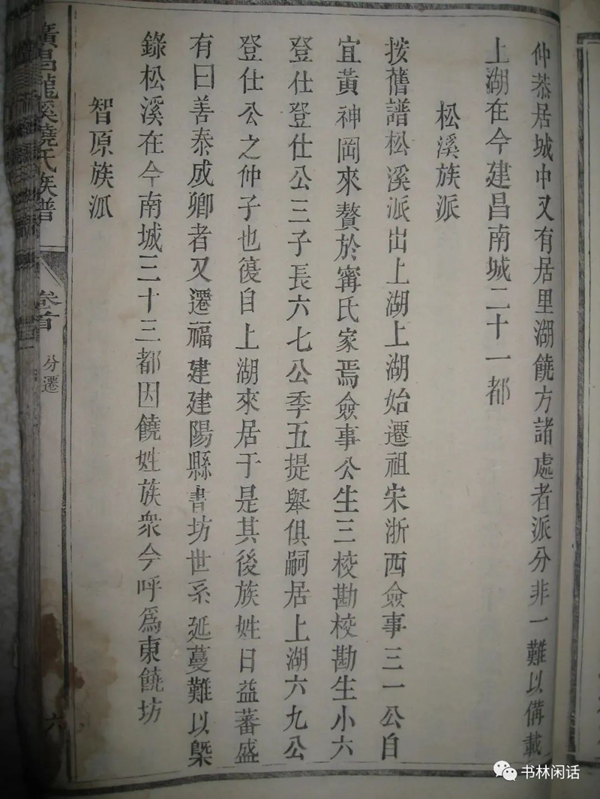 仲恭居城中又有居里湖饒方諸處者派分非一難以備載
上湖在今建昌南城二十一都
松溪族派
按舊譜松溪派出上湖上湖始遷祖宋浙西僉事三一公自
宜黃神岡來贅於甯氏家焉僉事公生三校勘校勘生小六
登仕登仕公三子長六七公季五提舉俱嗣居上湖六九公
登仕公之仲子也復自上湖來居于是其後族姓日益蕃盛
有曰善泰成卿者又遷福建建陽縣書坊世系延蔓難以槩
錄松溪在今南城三十三都因饒姓族衆今呼爲東饒坊
智原族派
廣昌龍溪饒氏族譜
卷首
分遷
六
书林闲话